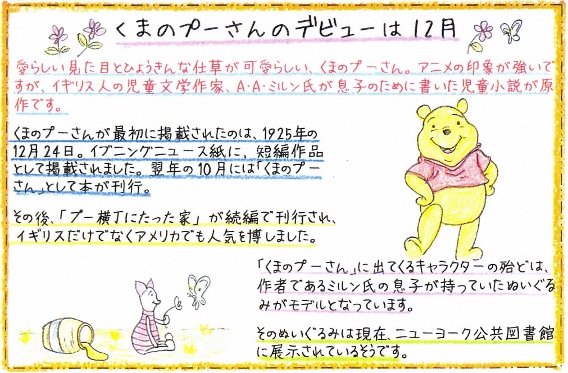 くまのプーさんのデビューは12月
愛らしい見た目とひょうきんな仕草が可愛らしい、くまのプーさん。アニメの印象が強いで
すが、イギリス人の児童文学作家、A・A・ミルン氏が息子のために書いた児童小説が原
作です。
くまのプーさんが最初に掲載されたのは、1925年の
12月24日。イブニングニュース紙に、短編作品
として掲載されました。翌年の10月には「くまのプー
さん」として本が刊行。
その後、「プー横丁にたった家」が続編で刊行され、
イギリスだけでなくアメリカでも人気を博しました。
「くまのプーさん」に出てくるキャラクターの殆どは、
作者であるミルン氏の息子が持っていたぬいぐる
みがモデルとなっています。
そのぬいぐるみは現在、ニューヨーク公共図書館
に展示されているそうです。